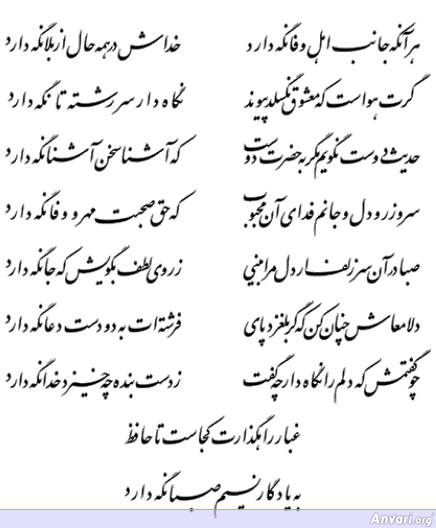 هر آنکه جانب اهل وفا نگه دارد خداش در همه حال از بلا نگه دارد
گرت هواست که معشوق نگسلد پیوند نگاه دار سر رشته تا نگه دارد
حدیث دوست نگویم مگر به حضرت دوست که آشنا سخن آشنا نگه دارد
سر و زر و دل و جانم فدای آن محبوب که حق صحبت مهر و وفا نگه دارد
صبا در آن سر زلف ار دل مرا بینی ز روی لطف بگویش که جا نگه دارد
دلا معاش چنان کن که گر بلغزد پای فرشته‌ات به دو دست دعا نگه دارد
چو گفتمش که دلم را نگاه دار چه گفت ز دست بنده چه خیزد خدا نگه دارد
غبار راهگذارت کجاست تا حافظ
به یادگار نسیم صبا نگه دارد
Anvari.org